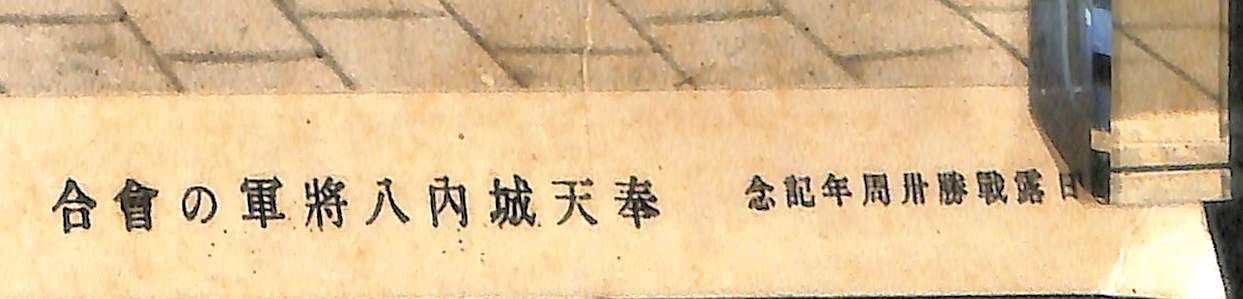 日露戰勝卅周年記念
奉天城內八將軍の會合